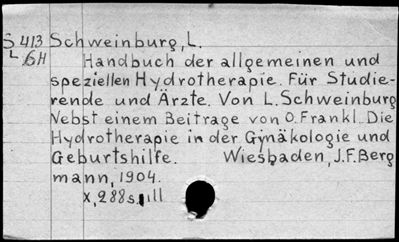 S 413 Schweinburg, L.
L SH Handbuch der allgemeinen und
speziellen Hydrotherapie. Für Studie-
rende und Ärzte. Von L. Schweinburg
Nebst einem Beitrage von O. Frankl. Die
Hydrotherapie in der Gynäkologie und
Geburtshilfe. Wiesbaden, J.F. Berg
mann, 1904.
X, 288 s. ill